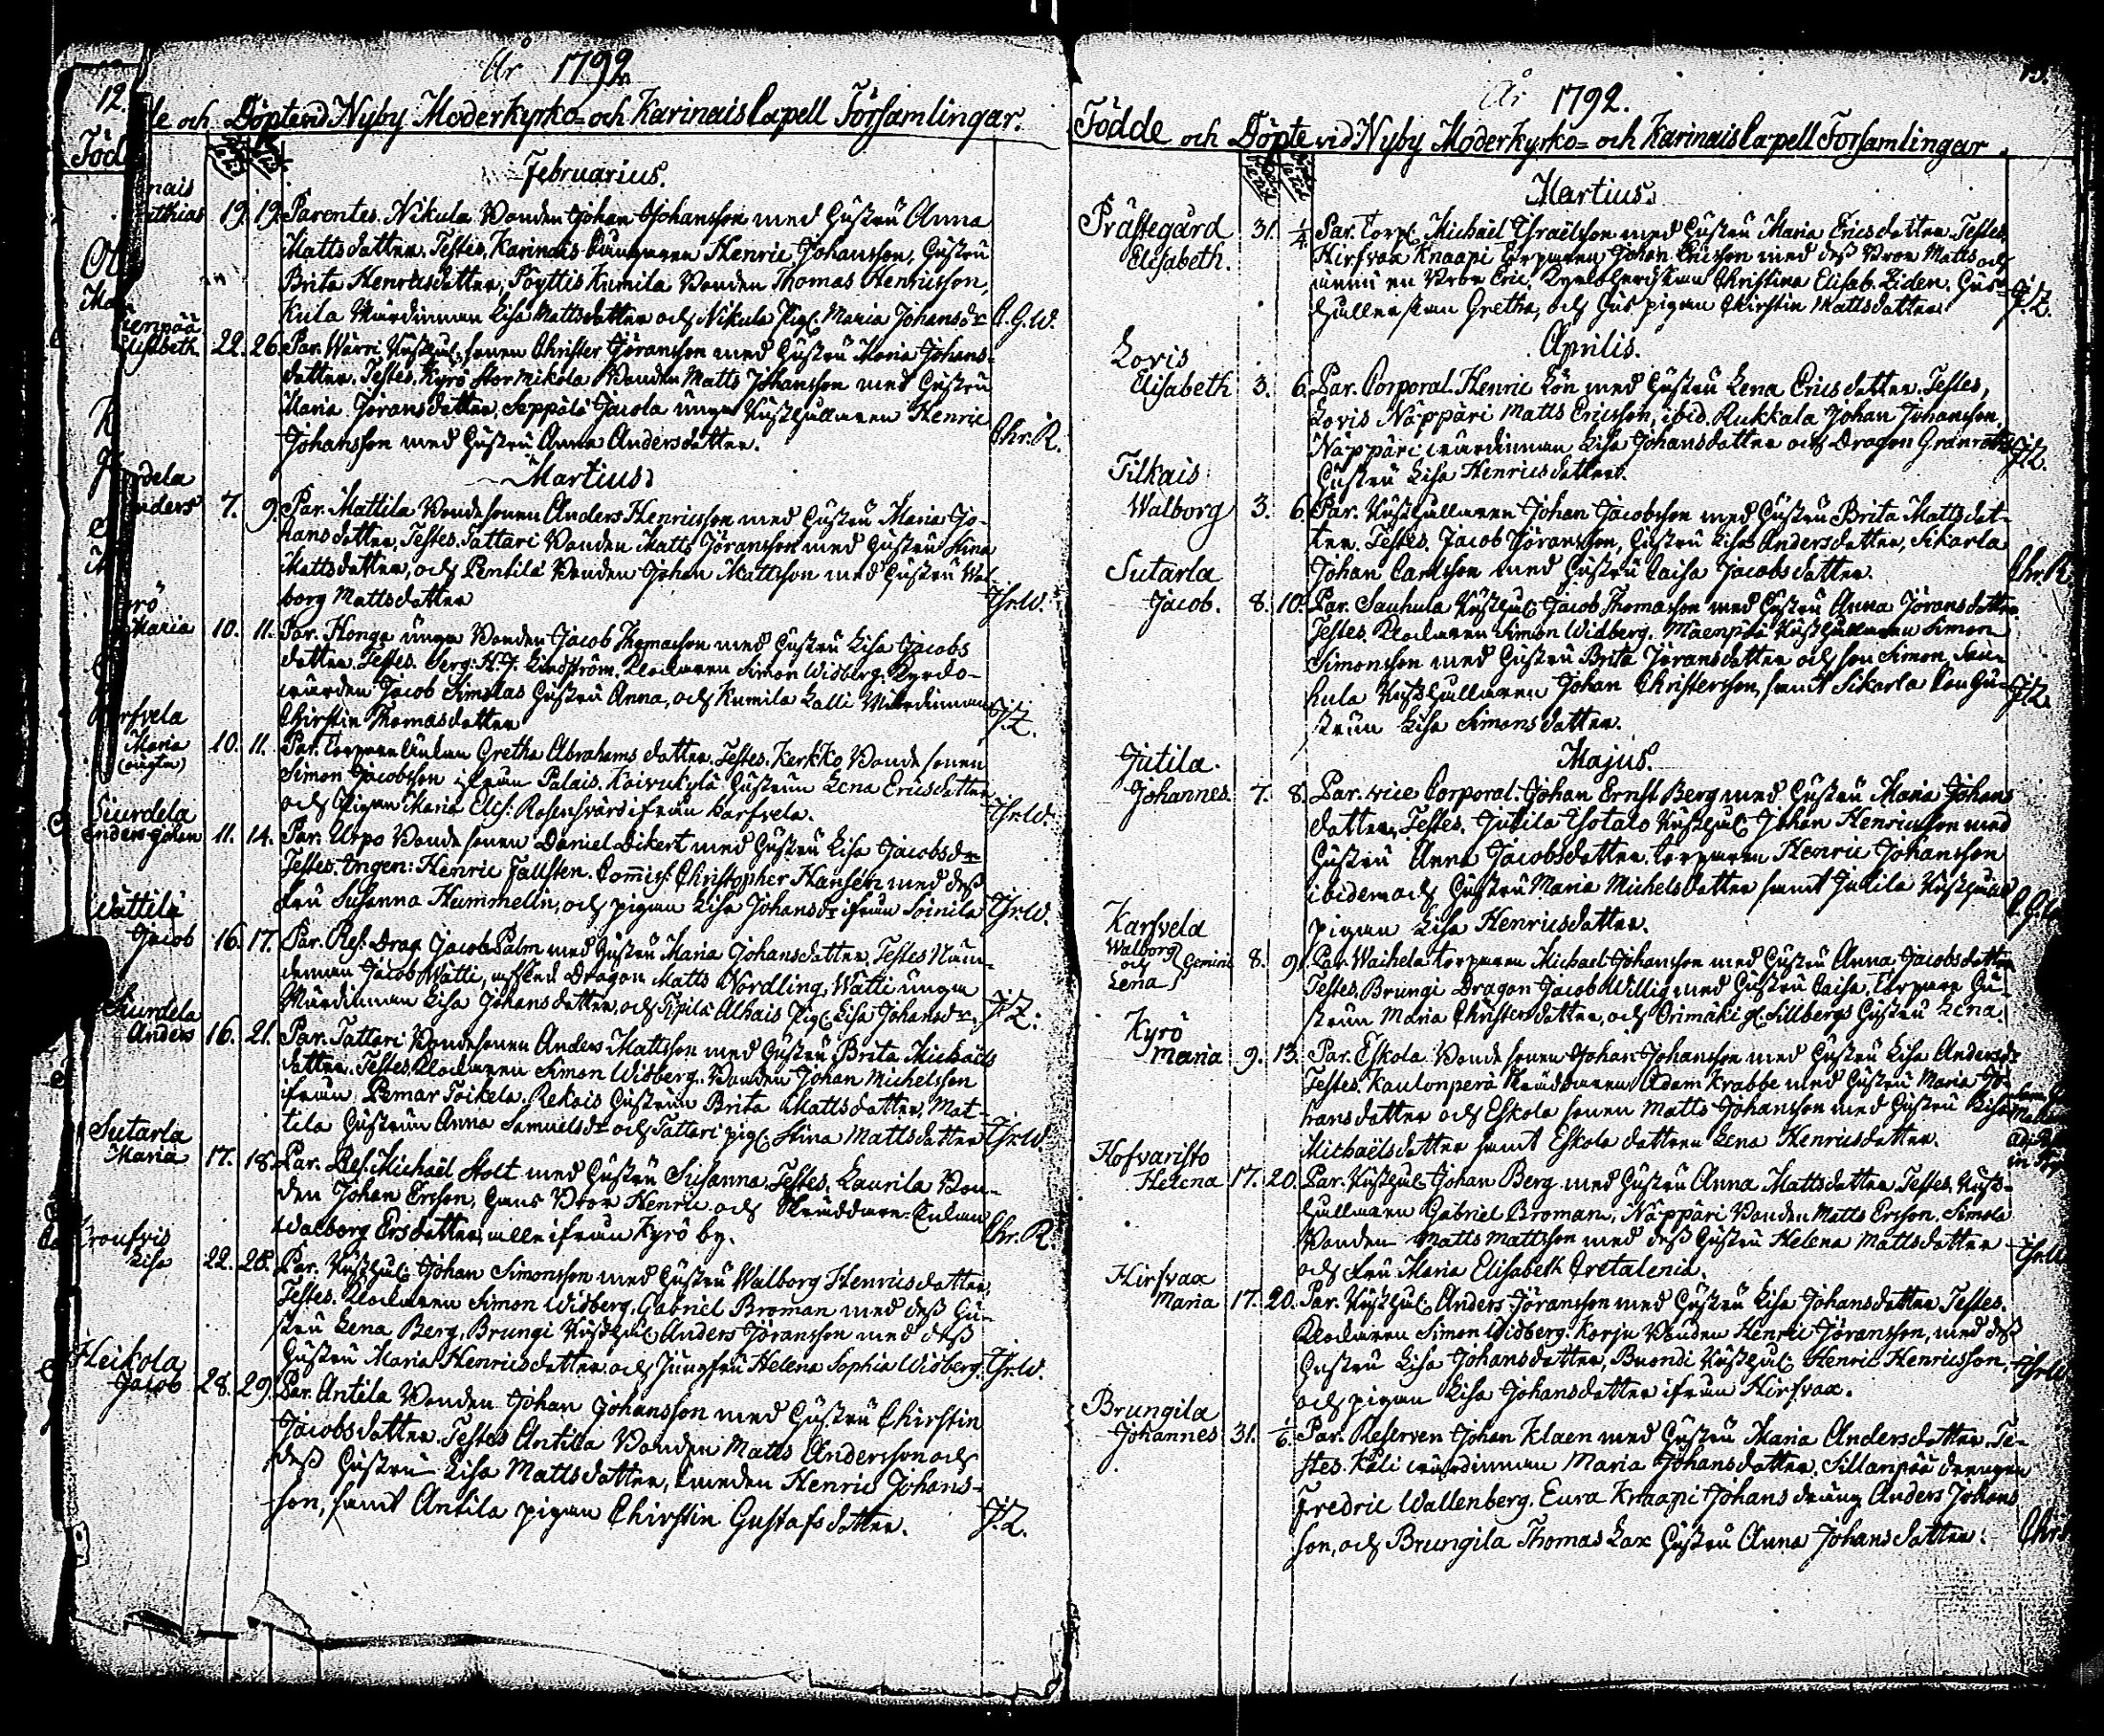 12.
År 1792
och Döpte vid Nyby Moderkyrko- och Karinais Capell Församlingar.
Föd
Februarius.
nais
athias 19. 19. Parentes. Nikula Bonden Johan Johansson med Hustru Anna
Mattsdotter. Testes. Karinais Henric Johansson, Hustru
Brita Henricsdotter, Pöyttis Kumila Bonden Thomas Henricsson,
Kula Wärdinnan Lisa Mattsdotter och Nikula Pig. Maria Johansdr C.G.W.
Elisabeth 22. 26. Par. Wärri Rusthål. sonen Christer Göransson med Hustru Maria Johans-
dotter. Testes. Kyrö Stormikola Bonden Matts Johansson med Hustru
Maria Göransdotter, Seppälä Jacola unga Rusthållaren Henric
Johansson med Hustru Anna Andersdotter. Chr. R.
Martius.
dela
Anders 7. 9. Par. Mattila Bondesonen Anders Henricsson med Hustru Maria Jo-
hansdotter, Testes. Tattari Bonden Matts Göransson med Hustru Stina
Mattsdotter, och Pentilä Bonden Johan Mattsson med Hustru Wal
borg Mattsdotter Thr.W.
rö
Maria 10. 11. Par. Honga unga Bonden Jacob Thomasson med Hustru Lisa Jacobs
dotter. Testes. Serg: H.J. Lindström. Klockaren Simon Widberg. Kyrdo-
wärden Jacob Simolas Hustru Anna, och Kumila Lalli Wärdinnan
Chirstin Thomasdotter J.Z.
Karfvela
Maria 10. 11. Par. Torpare Enkan Gretha Abrahamsdotter. Testes. Kerkko Bondesonen
(oägta)
Simon Jacobsson ifrån Palais. Koivukylä Hustrun Lena Ericsdotter
och Pigan Maria Elis. Rosensvärd ifrån Karfvela. Thr.W.
Siurdela
Anders Johan 11. 14. Par. Urpo Bondesonen Daniel Dikert med Hustru Lisa Jacobsdr
Testes. Ingen: Henric Fallsten. Commiss. Christopher Hansén med dess
fru Susanna Hummelin, och pigan Lisa Johansdr ifrån Soinila Thr.W.
Wättilä
Jacob 16. 17. Par. Res. Drag. Jacob Palm med Hustru Maria Johansdotter, Testes Näm-
deman Jacob Wätti, afsked Dragon Matts Nordling, Wätti unga
Wärdinnan Lisa Johansdotter, och Pipilä Alhais Pig. Lisa Johansdr. J.Z.
Siurdela
Anders 16. 21. Par. Tattari Bondesonen Anders Mattsson med Hustru Brita Michaels
dotter. Testes. Klockaren Simon Widberg. Bonden Johan Michelsson
ifrån Pemar Toikela. Rekois Hustrun Brita Mattsdotter, Mat-
tila Hustrun Anna Samuelsdr och Tattari pig. Stina Mattsdotter Thr.W.
Sutarla
Maria 17. 18. Par. Res. Michaël Stolt med Hustru Susanna. Testes. Laurila Bon-
den Johan Ersson, hans Bror Henric och Skräddare-Enkan
Walborg Ersdotter, alle ifrån Kyrö by. Chr. R.
Lisa 22. 28. Par. Rusthål. Johan Simonsson med Hustru Walborg Henricsdotter,
Testes. Klockaren Simon Widberg. Gabriel Broman med dess Hu-
stru Lena Berg. Brungi Rusthål. Anders Göransson med dess
Hustru Maria Henricsdotter och Jungfru Helena Sophia Widberg. Thr.W.
Heikola
Jacob 28. 29. Par. Antila Bonden Johan Johansson med Hustru Chirstin
Jacobsdotter. Testes Antila Bonden Matts Andersson och
dess Hustru Lisa Mattsdotter, Henric Johans-
son, samt Antila pigan Chirstin Gustafsdotter. J.Z.
13.
År 1792.
Födde och Döpte vid Nyby Moderkyrko- och Karinais Capell Församlingar.
Martius.
Prästegård 31. 1/4. Par. Torp. Michaël Israëlsson med Hustru Maria Ericsdotter. Testes.
Elisabeth. Hirfvax Knaapi Torparen Johan Ericsson med dess Bror Matts och
en Bror Eric. Christina Elisab. Liden. Hus-
hållerskan Gretha, och Hus pigan Chirstin Mattsdotter. J.Z.
Aprilis.
Loris
Elisabeth 3. 6. Par. Corporal Henric Lön med Hustru Lena Ericsdotter. Testes,
Loris Näppäri Matts Ericsson, ibid. Rukkala Johan Johansson,
Näppäri wärdinnan Lisa Johansdotter och Dragon Granroths J.Z.
Hustru Lisa Henricsdotter.
Tilkais
Walborg 3. 6. Par. Rusthållaren Johan Jacobsson med Hustru Brita Mattsdot-
ter. Testes. Jacob Göransson, Hustru Lisa Andersdotter, Sikarla
Johan Carlsson med Hustru Caisa Jacobsdotter. Chr. R.
Sutarla
Jacob. 8. 10. Par. Sauhula Rusthål. Jacob Thomasson med Hustru Anna Göransdotter.
Testes. Klockaren Simon Widberg. Mäenpää Rusthållaren Simon
Simonsson med Hustru Brita Göransdotter och son Simon. Sau-
hula Rusthållaren Johan Christersson, samt Sikarla Hu-
strun Lisa Simonsdotter. J.Z.
Majus.
Jutila.
Johannes. 7. 8. Par. vice Corporal Johan Ernst Berg med Hustru Maria Johans
dotter, Testes. Jutila Isotalo Rusthål. Johan Henricsson med
Hustru Anna Jacobsdotter. Torparen Henric Johansson
ibidem och Hustru Maria Michelsdotter samt Jutila Rusthålls
pigan Lisa Henricsdotter. C.G.W.
Karfvela
Walborg
och Gemini 8. 9. Par. Waihela Torparen Michael Johansson med Hustru Anna Jacobsdotter
Lena
Testes. Brungi Dragon Jacob Willig med Hustru Caisa, Torpare Hu-
strun Maria Christersdotter, och Orimäki gl. Sillbergs Hustru Lena.
Kyrö
Maria 9. 13. Par. Eskola Bondesonen Johan Johansson med Hustru Lisa Andersdr
Testes. Kaulonperä Skräddaren Adam Krabbe med Hustru Maria Jo-
hansdotter och Eskola sonen Matts Johansson med Hustru Lisa
Michaëlsdotter samt Eskola dottren Lena Henricsdotter.
Hofvaristo
Helena 17. 20. Par. Rusthål. Johan Berg med Hustru Anna Mattsdotter. Testes. Rust-
hållaren Gabriel Broman, Näppäri Bonden Matts Ersson. Simola
Bonden Matts Mattsson med dess Hustru Helena Mattsdotter
och fru Maria Elisabeth Cretalenia. Thr.W
Hirfvax
Maria 17. 20. Par. Rusthål. Anders Göransson med Hustru Lisa Johansdotter Testes.
Klockaren Simon Widberg. Korju Bonden Henric Göransson, med dess
Hustru Lisa Johansdotter, Buondi Rusthål. Henric Henricsson,
och pigan Lisa Johansdotter ifrån Hirfvax. Thr.W
Brungila
Johannes 31. 1/6. Par. Reserven Johan Klaen med Hustru Maria Andersdotter. Te-
stes. Käli wärdinnan Maria Johansdotter. Sillanpää drengen
Fredric Wallenberg. Eura Knaapi Johans dräng Anders Johans
son, och Brungila Thomas Lax Hustru Anna Johansdotter. Chr.